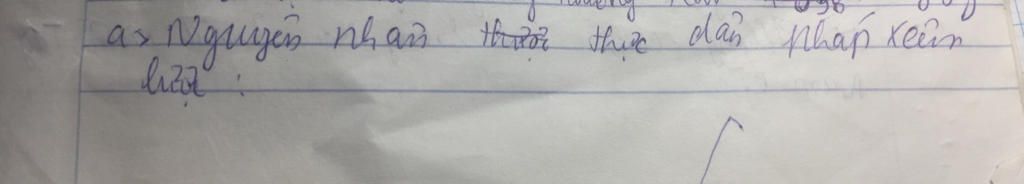 a> Nguyên nhân thực dân pháp xâm
lược :